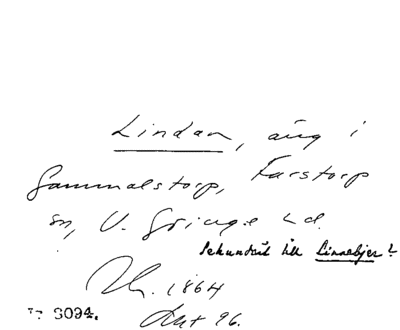 Lindan, äng i
Gammalstorp, Farstorp
sn, V. Göinge hd.
Sekundärt till Linnebjer?
1864
Akt 96.
3094.